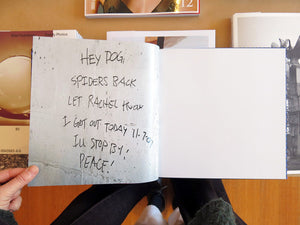 HEY DOG,
SPIDERS BACK
LET RACHEL KNOW
I GOT OUT TODAY
I'LL STOP BY!
PEACE!
12